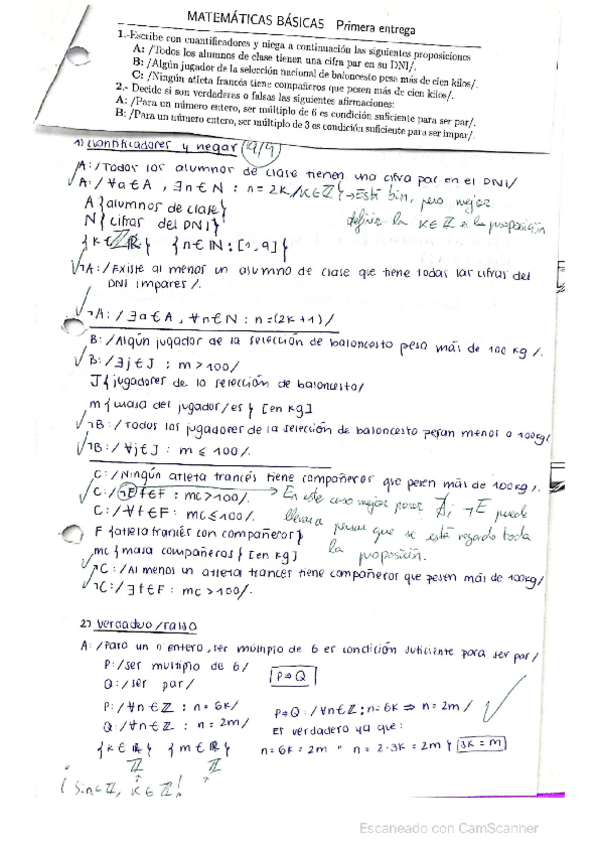 MATEMÁTICAS BÁSICAS Primera entrega
1.-Escribe con cuantificadores y niega a continuación las siguientes proposiciones
A: /Todos los alumnos de clase tienen una cifra par en su DNI/.
B: /Algún jugador de la selección nacional de baloncesto pesa más de cien kilos/.
C: /Ningún atleta francés tiene compañeros que pesen más de cien kilos/.
2.- Decide si son verdaderos o falsas las siguientes afirmaciones:
A: /Para un número entero, ser múltiplo de 6 es condición suficiente para ser par/.
B: /Para un número entero, ser múltiplo de 3 es condición suficiente para ser impar/.
1) Cuantificadores y negar
A:/Todos los alumnos de clase tienen una cifra par en el DNI/
A:/ ∀a∈A, ∃n∈N : n=2K/K∈ℤ} → Está bien, pero mejor
A{alumnos de clase} definir la K∈ℤ en la proposición
N{cifras del DNI}
{k∈ℤ} {n∈ℕ:[1,9]}
¬A:/Existe al menos un alumno de clase que tiene todas las cifras del
DNI impares/.
¬A:/∃a∈A, ∀n∈N : n=(2K+1)/
B:/Algún jugador de la selección de baloncesto pesa más de 100 kg/.
B:/∃j∈J : m>100/
J{jugadores de la selección de baloncesto/
m{masa del jugador/es} [en kg]
¬B:/Todos los jugadores de la selección de baloncesto pesan menos o 100kg/
¬B:/∀j∈J : m≤100/.
C:/Ningún atleta francés tiene compañeros que pesen más de 100kg/.
C:/¬∃f∈F : mc>100/. → En este caso mejor poner ∄, ¬∃ puede
C:/∀f∈F : mc≤100/. llevar a pensar que se está negando toda
F{atleta francés con compañeros} la proposición.
mc{masa compañeros} [en kg]
¬C:/Al menos un atleta francés tiene compañeros que pesen más de 100kg/
¬C:/∃f∈F : mc>100/.
2) Verdadero/falso
A:/Para un nº entero, ser múltiplo de 6 es condición suficiente para ser par/
P:/ser multiplo de 6/ P⇒Q
Q:/ser par/
P:/∀n∈ℤ : n=6K/ P⇒Q:/∀n∈ℤ:n=6K ⇒ n=2m/
Q:/∀n∈ℤ : n=2m/ Es verdadero ya que:
{k∈ℝ} {m∈ℝ} n=6K=2m " n=2·3K=2m} 3K=m
ℤ ℤ
¡Si n∈ℤ, K∈ℤ!
Escaneado con CamScanner